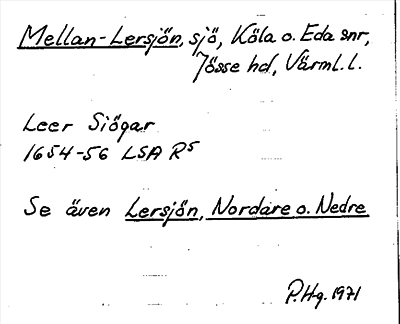 Mellan-Lersjön, sjö, Köla o. Eda snr,
Jösse hd, Värml. l.
Leer Siögar
1654-56 LSA R5
Se även Lersjön, Nordare o. Nedre
P.Hg. 1971